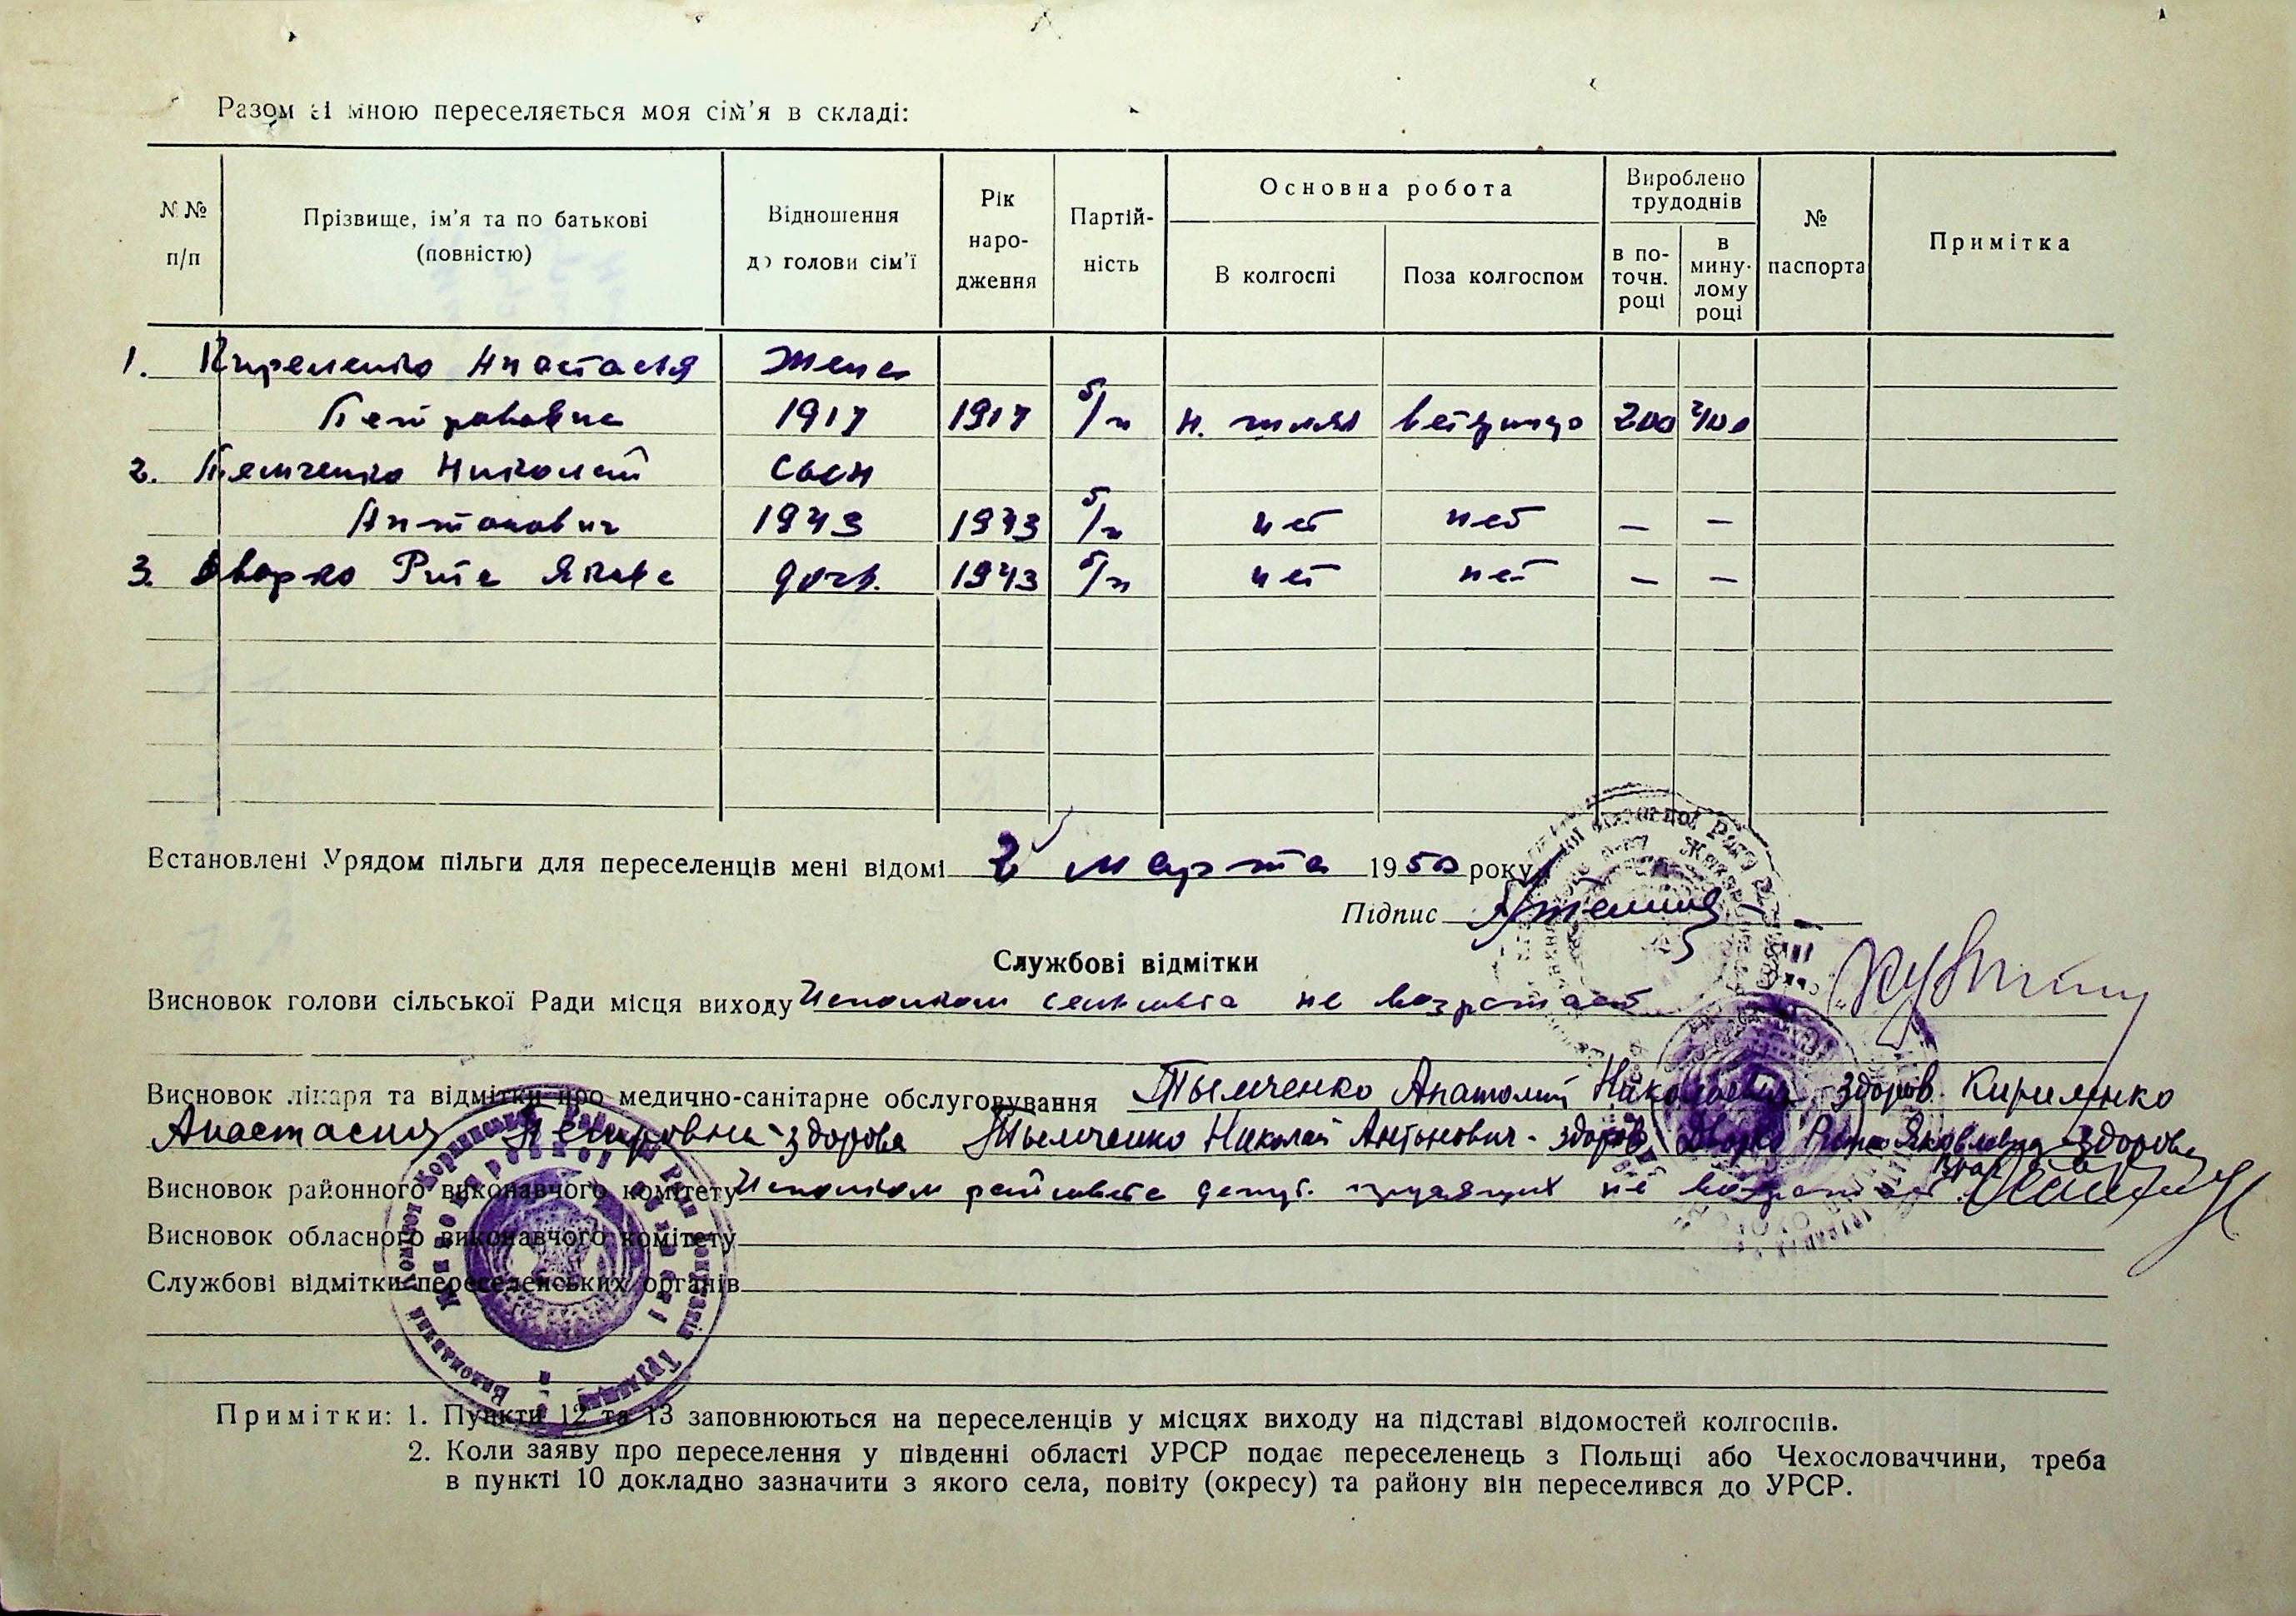 Разом зі мною переселяється моя сім'я в складі:
№№ п/п
Прізвище, ім'я та по батькові (повністю)
Відношення до голови сім'ї
Рік народження
Партій-ність
Основна робота
В колгоспі
Поза колгоспом
Вироблено трудоднів
в по-точн. році
в мину-лому році
№ паспорта
Примітка
1. Кириленко Анастасія жена
Петровавна 1917 1917 б/п 200 400
2. Темченко Николай сын
Антонович 1943 1943 б/п нет нет — —
3. Дворко Рита Якове дочь. 1943 б/п нет нет — —
Встановлені Урядом пільги для переселенців мені відомі 2 марта 1950 року
Підпис
Службові відмітки
Висновок голови сільської Ради місця виходу Исполком сельсовета не возражает
Висновок лікаря та відмітки про медично-санітарне обслуговування Тымченко Анатолий Николаевич здоров. Кириленко
Анастасия Петровна - здорова Тымченко Николай Антонович - здоров Дворко Рита Яковлевна здорова
Врач
Висновок районного виконавчого комітету Исполком райсовета депут. трудящих не возражает
Висновок обласного виконавчого комітету
Службові відмітки переселенських органів
Примітки: 1. Пункти 12 та 13 заповнюються на переселенців у місцях виходу на підставі відомостей колгоспів.
2. Коли заяву про переселення у південні області УРСР подає переселенець з Польщі або Чехословаччини, треба
в пункті 10 докладно зазначити з якого села, повіту (окресу) та району він переселився до УРСР.